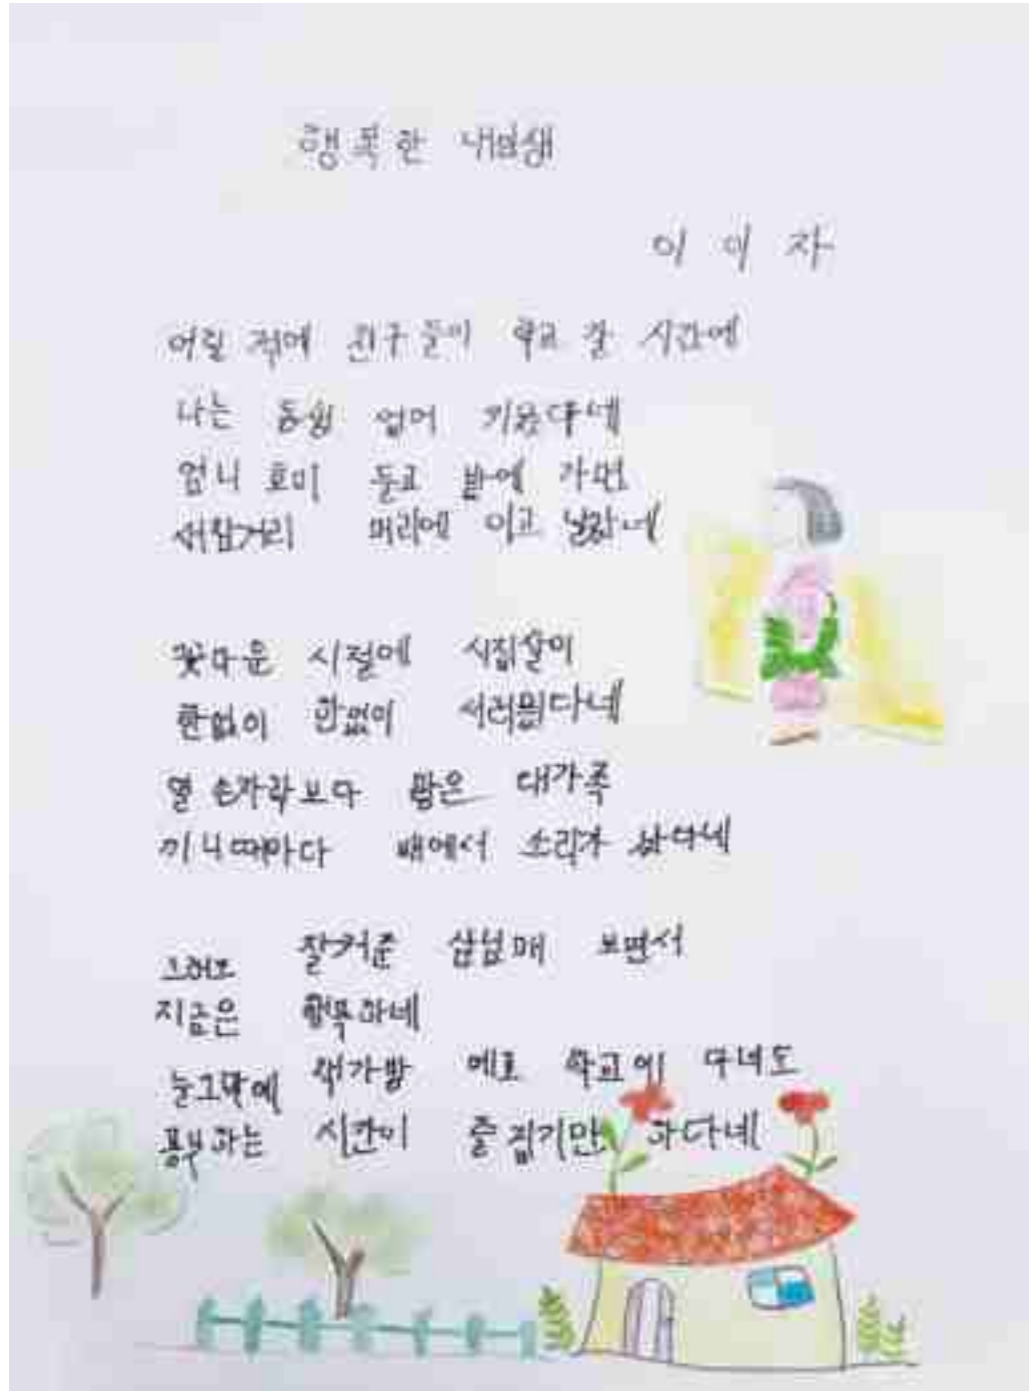 행복한 내인생
이 이 자
어릴 적에 친구들이 학교 갈 시간에
나는 동생 업어 키웠다네
엄니 호미 들고 밭에 가면
새참거리 머리에 이고 날랐네
꽃다운 시절에 시집살이
한없이 한없이 서러웠다네
열 손가락보다 많은 대가족
끼니때마다 배에서 소리가 났다네
그래도 잘커준 삼남매 보면서
지금은 행복하네
눈그막에 책가방 메고 학교에 다녀도
공부하는 시간이 즐겁기만 하다네